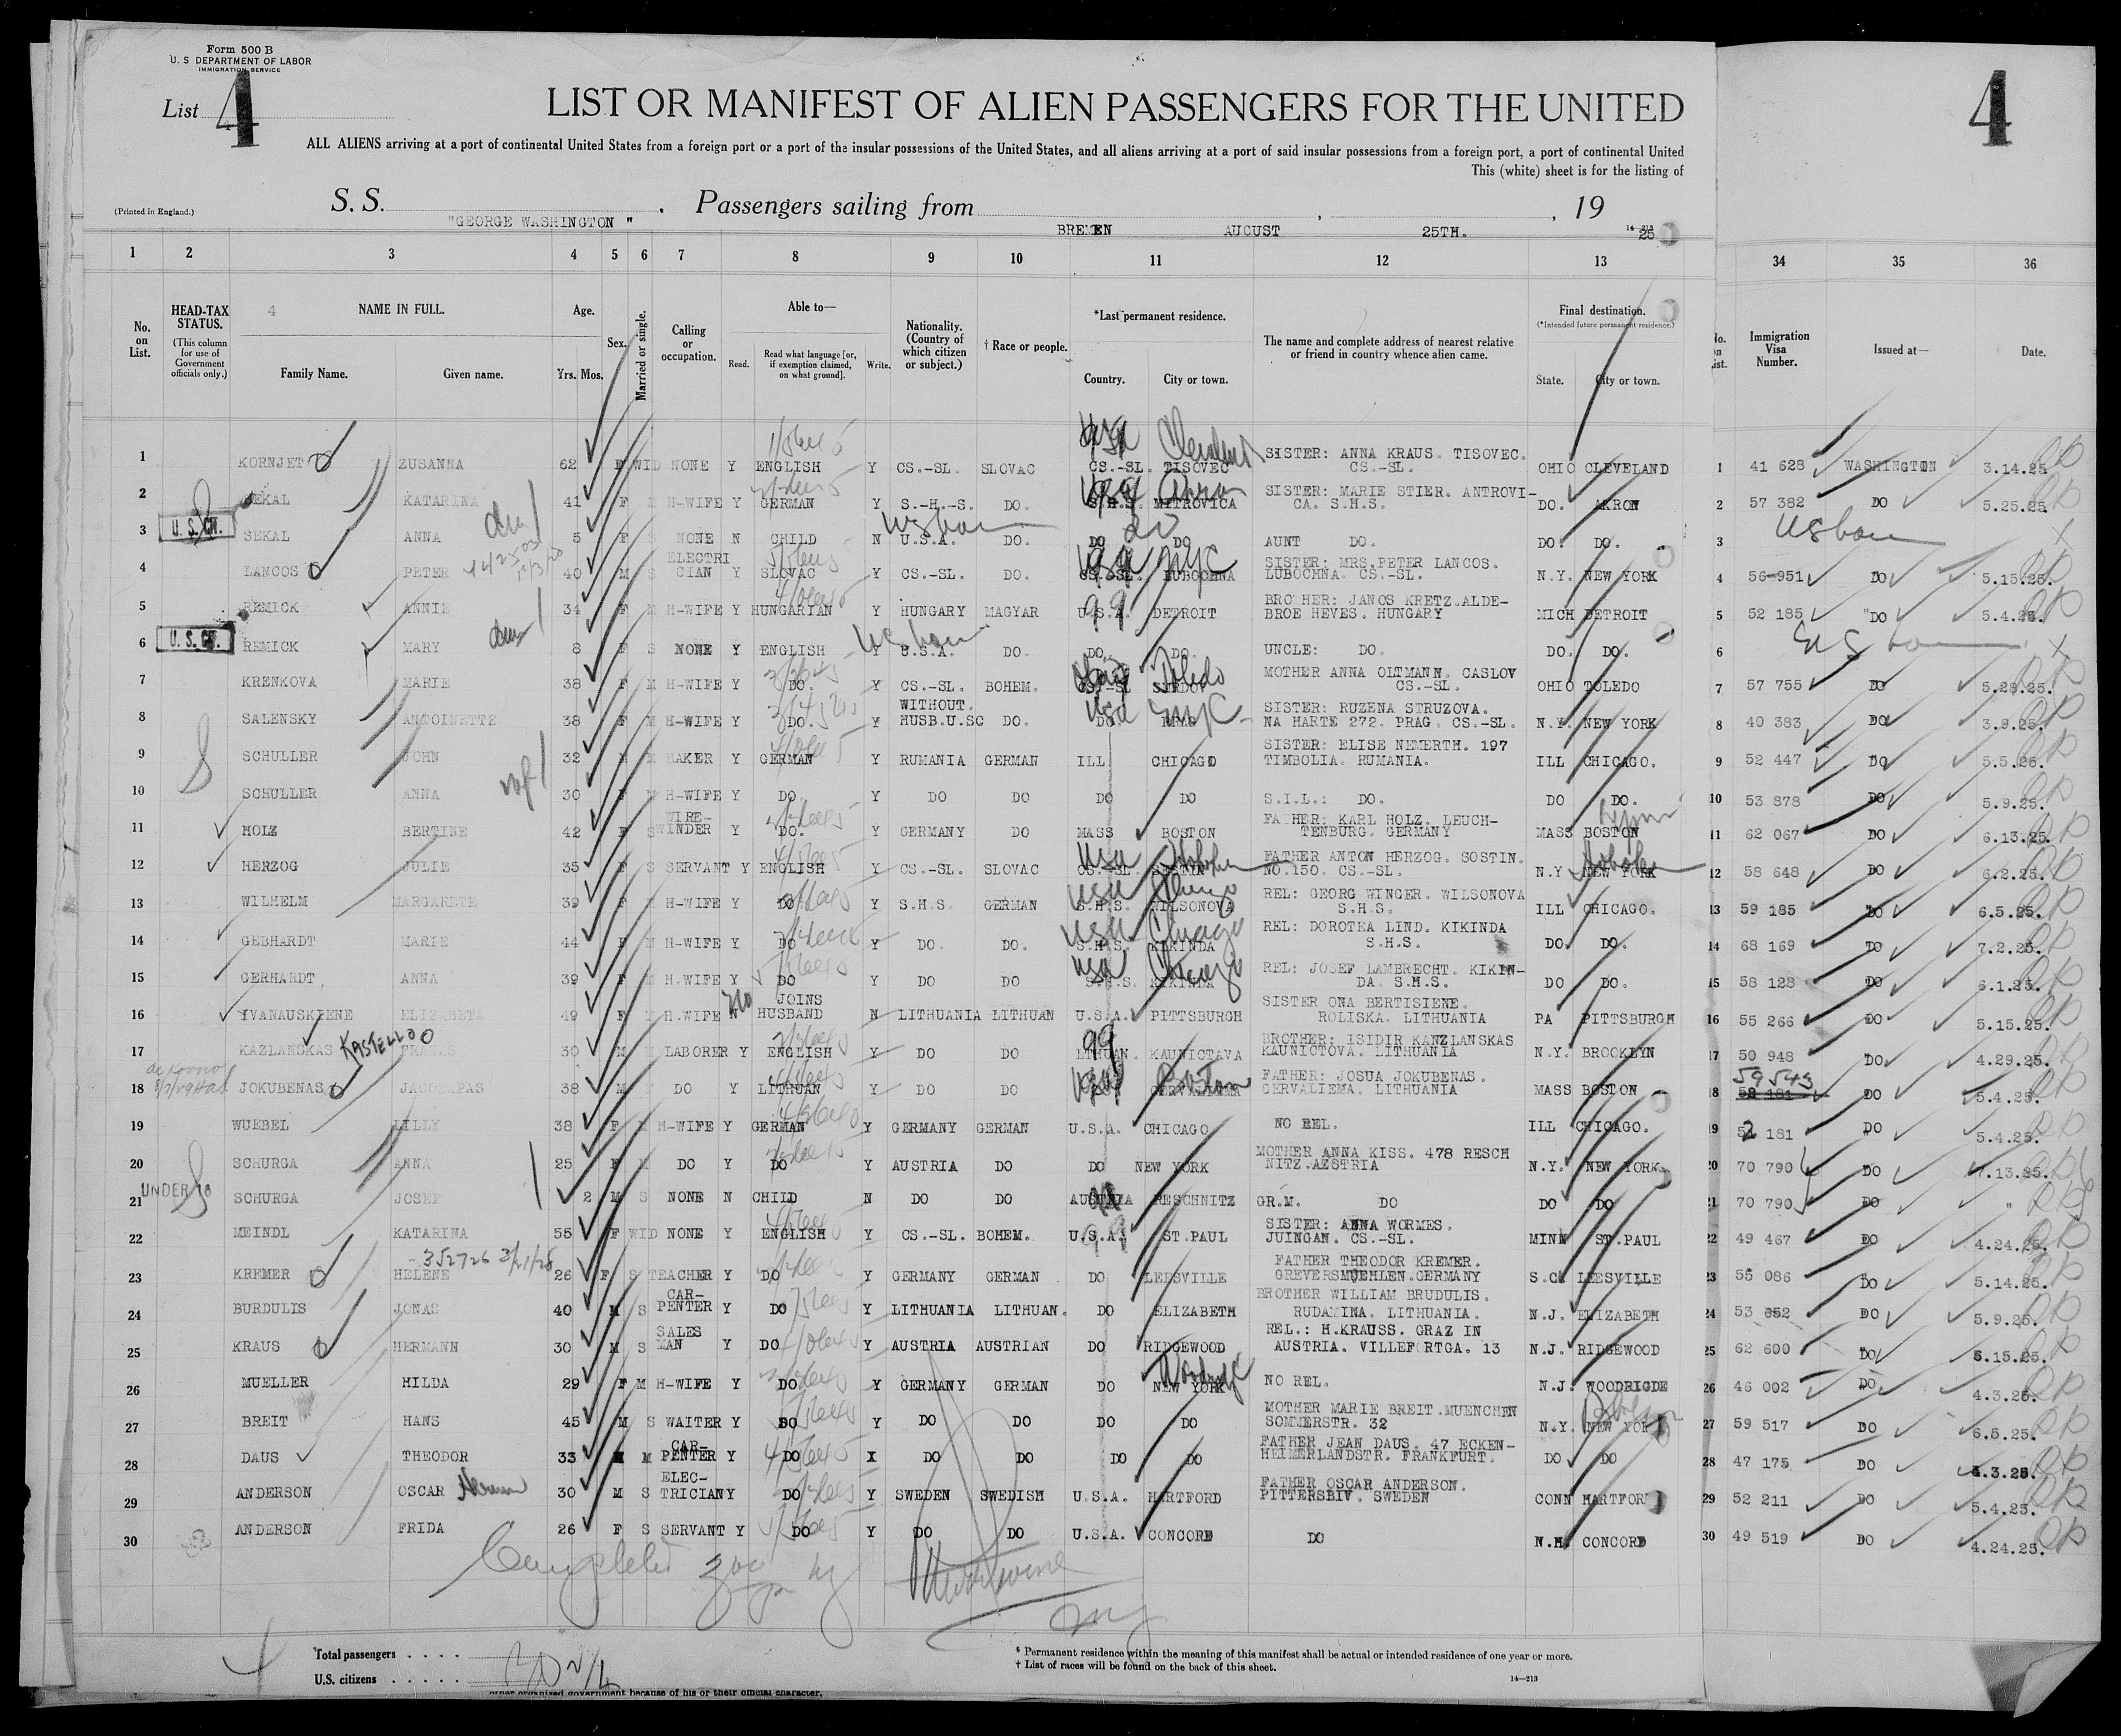 Form 500 B
U. S DEPARTMENT OF LABOR
IMMIGRATION SERVICE
List 4
4
LIST OR MANIFEST OF ALIEN PASSENGERS FOR THE UNITED
ALL ALIENS arriving at a port of continental United States from a foreign port or a port of the insular possessions of the United States, and all aliens arriving at a port of said insular possessions from a foreign port, a port of continental United
This (white) sheet is for the listing of
(Printed in England.)
S. S. "GEORGE WASHINGTON" . Passengers sailing from BREMEN , AUGUST 25TH. , 19 25
14-213
1 2 3 4 5 6 7 8 9 10 11 12 13 34 35 36
No. on List.
HEAD-TAX STATUS.
(This column for use of Government officials only.)
4 NAME IN FULL.
Family Name. Given name.
Age. Yrs. Mos.
Sex.
Married or single.
Calling or occupation.
Able to—
Read. Read what language [or, if exemption claimed, on what ground]. Write.
Nationality. (Country of which citizen or subject.)
† Race or people.
*Last permanent residence.
Country. City or town.
The name and complete address of nearest relative or friend in country whence alien came.
Final destination.
(*Intended future permanent residence.)
State. City or town.
Immigration Visa Number.
Issued at—
Date.
1 KORNJET ZUSANNA 62 F WID NONE Y ENGLISH Y CS.-SL. SLOVAC CS.-SL. TISOVEC USA Cleveland SISTER: ANNA KRAUS. TISOVEC. CS.-SL. OHIO CLEVELAND 1 41 628 WASHINGTON 3.14.25
2 SEKAL KATARINA 41 F M H-WIFE Y GERMAN Y S.-H.-S. DO. S.H.S. MITROVICA Akron SISTER: MARIE STIER. ANTROVICA. S.H.S. DO. AKRON 2 57 382 DO 5.25.25
3 U.S.CIT. SEKAL ANNA 5 F S NONE N CHILD N U.S.A. DO. DO DO AUNT DO. DO. DO. 3 US born
4 LANCOS PETER 40 M S ELECTRICIAN Y SLOVAC Y CS.-SL. DO. CS.-SL. LUBOCHNA USA NYC SISTER: MRS.PETER LANCOS. LUBOCHNA. CS.-SL. N.Y. NEW YORK 4 56-951 DO 5.15.25.
5 REMICK ANNIE 34 F M H-WIFE Y HUNGARIAN Y HUNGARY MAGYAR U.S.A. DETROIT BROTHER: JANOS KRETZ.ALDEBROE HEVES. HUNGARY MICH DETROIT 5 52 185 "DO 5.4.25
6 U.S.CIT. REMICK MARY 8 F S NONE Y ENGLISH Y U.S.A. DO. DO. DO. UNCLE: DO. DO. DO. 6 US born
7 KRENKOVA MARIE 38 F M H-WIFE Y DO. Y CS.-SL. BOHEM. CS.-SL Toledo MOTHER ANNA OLTMANN. CASLOV CS.-SL. OHIO TOLEDO 7 57 755 DO 5.28.25.
8 SALENSKY ANTOINETTE 38 F M H-WIFE Y DO. Y WITHOUT. HUSB.U.SC DO. DO PRAG NYC SISTER: RUZENA STRUZOVA. NA HARTE 272. PRAG. CS.-SL. N.Y. NEW YORK 8 40 383 DO 3.9.25.
9 SCHULLER JOHN 32 M M BAKER Y GERMAN Y RUMANIA GERMAN ILL CHICAGO SISTER: ELISE NEMERTH. 197 TIMBOLIA. RUMANIA. ILL CHICAGO. 9 52 447 DO 5.5.25.
10 SCHULLER ANNA 30 F M H-WIFE Y DO. Y DO DO DO DO S.I.L.: DO. DO DO. 10 53 878 DO 5.9.25.
11 HOLZ BERTINE 42 F S WIRE-WINDER Y DO. Y GERMANY DO MASS BOSTON FATHER: KARL HOLZ. LEUCHTENBURG. GERMANY MASS BOSTON Lynn 11 62 067 DO 6.13.25.
12 HERZOG JULIE 35 F S SERVANT Y ENGLISH Y CS.-SL. SLOVAC CS.-SL. SOSTIN USA Hoboken FATHER ANTON HERZOG. SOSTIN. NO.150. CS.-SL. N.Y NEW YORK Hoboken 12 58 648 DO 6.2.25.
13 WILHELM MARGARETE 39 F M H-WIFE Y DO Y S.H.S. GERMAN S.H.S. WILSONOVA USA Chicago REL: GEORG WINGER. WILSONOVA S.H.S. ILL CHICAGO. 13 59 185 DO 6.5.25.
14 GEBHARDT MARIE 44 F M H-WIFE Y DO Y DO. DO. S.H.S. KIKINDA USA Chicago REL: DOROTEA LIND. KIKINDA S.H.S. DO. DO. 14 68 169 DO 7.2.25.
15 GERHARDT ANNA 39 F M H.WIFE Y DO Y DO DO S.H.S. KIKINDA USA Chicago REL: JOSEF LAMBRECHT. KIKINDA. S.H.S. DO DO. 15 58 128 DO 6.1.25.
16 IVANAUSKIENE ELIZABETA 49 F M H-WIFE N JOINS HUSBAND N LITHUANIA LITHUAN U.S.A. PITTSBURGH SISTER ONA BERTISIENE. ROLISKA. LITHUANIA PA PITTSBURGH 16 55 266 DO 5.15.25.
17 KAZLANSKAS KASTELLO PRANAS 30 M LABORER Y ENGLISH Y DO DO LITHUAN. KAUNICTAVA BROTHER: ISIDIR KANZLANSKAS KAUNIOTOVA. LITHUANIA N.Y. BROOKLYN 17 50 948 "DO 4.29.25.
18 JOKUBENAS 38 M DO Y LITHUAN Y DO DO Boston FATHER: JOSUA JOKUBENAS. GERVALIEMA. LITHUANIA MASS BOSTON 18 59 181 59 543 DO 5.4.25.
19 WUEBEL LILLY 38 F M H-WIFE Y GERMAN Y GERMANY GERMAN U.S.A. CHICAGO NO REL. ILL CHICAGO. 19 52 181 DO 5.4.25.
20 SCHURGA ANNA 25 F M DO Y DO Y AUSTRIA DO DO NEW YORK MOTHER ANNA KISS. 478 RESCHNITZ.AZSTRIA N.Y. NEW YORK 20 70 790 DO 7.13.25.
21 UNDER 16 SCHURGA JOSEF 2 M S NONE N CHILD N DO DO AUSTRIA RESCHNITZ GR.M. DO DO DO 21 70 790 DO "
22 MEINDL KATARINA 55 F WID NONE Y ENGLISH Y CS.-SL. BOHEM. U.S.A. ST.PAUL SISTER: ANNA WORMES. JUINGAN. CS.-SL. MINN ST.PAUL 22 49 467 DO 4.24.25.
352726 3/21/28
23 KREMER HELENE 26 F S TEACHER Y DO Y GERMANY GERMAN DO LEESVILLE FATHER THEODOR KREMER. GREVERSMUEHLEN.GERMANY S.C. LEESVILLE 23 55 086 DO 5.14.25.
24 BURDULIS JONAS 40 M S CARPENTER Y DO Y LITHUANIA LITHUAN. DO ELIZABETH BROTHER WILLIAM BRUDULIS. RUDAMINA. LITHUANIA. N.J. ELIZABETH 24 53 052 DO 5.9.25.
25 KRAUS HERMANN 30 M S SALESMAN Y DO Y AUSTRIA AUSTRIAN DO RIDGEWOOD REL.: H.KRAUSS. GRAZ IN AUSTRIA. VILLEFORTGA. 13 N.J. RIDGEWOOD 25 62 600 DO 6.15.25.
26 MUELLER HILDA 29 F M H-WIFE Y DO Y GERMANY GERMAN DO NEW YORK NO REL. N.J. WOODRIGDE 26 46 002 DO 4.3.25.
27 BREIT HANS 45 M S WAITER Y DO Y DO DO DO DO MOTHER MARIE BREIT.MUENCHEN SOMMERSTR. 32 N.Y. NEW YORK 27 59 517 DO 6.5.25.
28 DAUS THEODOR 33 M M CARPENTER Y DO X DO DO DO DO FATHER JEAN DAUS. 47 ECKENHEIMERLANDSTR. FRANKFURT. DO DO 28 47 175 DO 4.3.25.
29 ANDERSON OSCAR Herman 30 M S ELECTRICIAN Y DO Y SWEDEN SWEDISH U.S.A. HARTFORD FATHER OSCAR ANDERSON. PITTERSBIV. SWEDEN CONN HARTFORD 29 52 211 DO 5.4.25.
30 ANDERSON FRIDA 26 F S SERVANT Y DO Y DO DO U.S.A. CONCORD DO N.H. CONCORD 30 49 519 DO 4.24.25.
Total passengers . . . .
U.S. citizens . . . . .
* Permanent residence within the meaning of this manifest shall be actual or intended residence of one year or more.
† List of races will be found on the back of this sheet.
14—213
other organized government because of his or their official character.